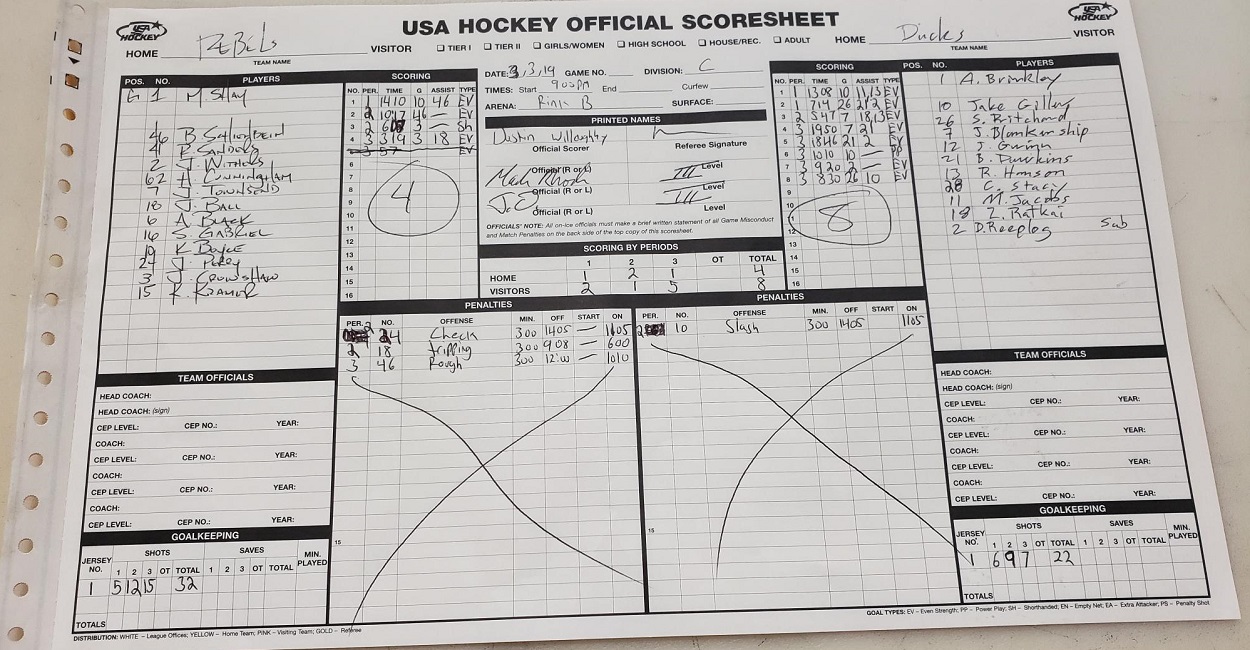 USA HOCKEY OFFICIAL SCORESHEET
USA HOCKEY
HOME REBELS VISITOR
TEAM NAME
☐ TIER I ☐ TIER II ☐ GIRLS/WOMEN ☐ HIGH SCHOOL ☐ HOUSE/REC. ☐ ADULT
HOME Ducks VISITOR
TEAM NAME
USA HOCKEY
POS. NO. PLAYERS
G 1 M SHAY
46 B.
4 R SANDERS
2 J. WITHERS
62 H. CUNNINGHAM
7 J. TOWNSEND
18 J. BALL
6 A. BLACK
16 S. GABRIEL
19 K BOYLE
24 J. PERRY
3 J. CRUNSHAW
15 K. KRAMER
SCORING
NO. PER. TIME G ASSIST TYPE
1 1 1410 10 46 EV
2 2 1047 46 — EV
3 2 3 — Sh
4 3 319 3 18 EV
5 3 57 EV
6
7
8
9
10
11
12
13
14
15
16
4
DATE: 3,3,19 GAME NO. DIVISION: C
TIMES: Start 900PM End Curfew
ARENA: Rink B SURFACE:
PRINTED NAMES
Dustin Willoughby
Official Scorer Referee Signature
Mark Rhode III
Official (R or L) Level
III
Official (R or L) Level
Official (R or L) Level
OFFICIALS' NOTE: All on-ice officials must make a brief written statement of all Game Misconduct
and Match Penalties on the back side of the top copy of this scoresheet.
SCORING BY PERIODS
1 2 3 OT TOTAL
HOME 1 2 1 4
VISITORS 2 1 5 8
SCORING
NO. PER. TIME G ASSIST TYPE
1 1 1308 10 11,13 EV
2 1 714 26 21 2 EV
3 2 547 7 18,13 EV
4 3 1950 7 21 EV
5 3 1846 21 2 EV
6 3 1010 10 — PP
7 3 920 2 — EV
8 3 830 26 10 EV
9
10
11
12
13
14
15
16
8
POS. NO. PLAYERS
1 A. Brinkley
10 Jake Gilley
26 S. Britchard
7 J. Blankenship
12 J. Gwinn
21 B. Dawkins
13 R. Hinson
28 C. Stacy
11 M. Jacobs
18 Z. Ratkai
2 D. Reeplog Sub
PENALTIES
PER. NO. OFFENSE MIN. OFF START ON
2 24 Check 300 1405 — 1105
2 18 tripping 300 908 — 600
3 46 Rough 300 — 1010
15
PENALTIES
PER. NO. OFFENSE MIN. OFF START ON
2 10 Slash 300 1405 1105
15
TEAM OFFICIALS
HEAD COACH:
HEAD COACH: (sign)
CEP LEVEL: CEP NO.: YEAR:
COACH:
CEP LEVEL: CEP NO.: YEAR:
COACH:
CEP LEVEL: CEP NO.: YEAR:
COACH:
CEP LEVEL: CEP NO.: YEAR:
TEAM OFFICIALS
HEAD COACH:
HEAD COACH: (sign)
CEP LEVEL: CEP NO.: YEAR:
COACH:
CEP LEVEL: CEP NO.: YEAR:
COACH:
CEP LEVEL: CEP NO.: YEAR:
COACH:
CEP LEVEL: CEP NO.: YEAR:
GOALKEEPING
JERSEY NO. SHOTS SAVES MIN. PLAYED
1 2 3 OT TOTAL 1 2 3 OT TOTAL
1 5 12 15 32
TOTALS
GOALKEEPING
JERSEY NO. SHOTS SAVES MIN. PLAYED
1 2 3 OT TOTAL 1 2 3 OT TOTAL
1 6 9 7 22
TOTALS
DISTRIBUTION: WHITE – League Offices; YELLOW – Home Team; PINK – Visiting Team; GOLD – Referee
GOAL TYPES: EV – Even Strength; PP – Power Play; SH – Shorthanded; EN – Empty Net; EA – Extra Attacker; PS – Penalty Shot